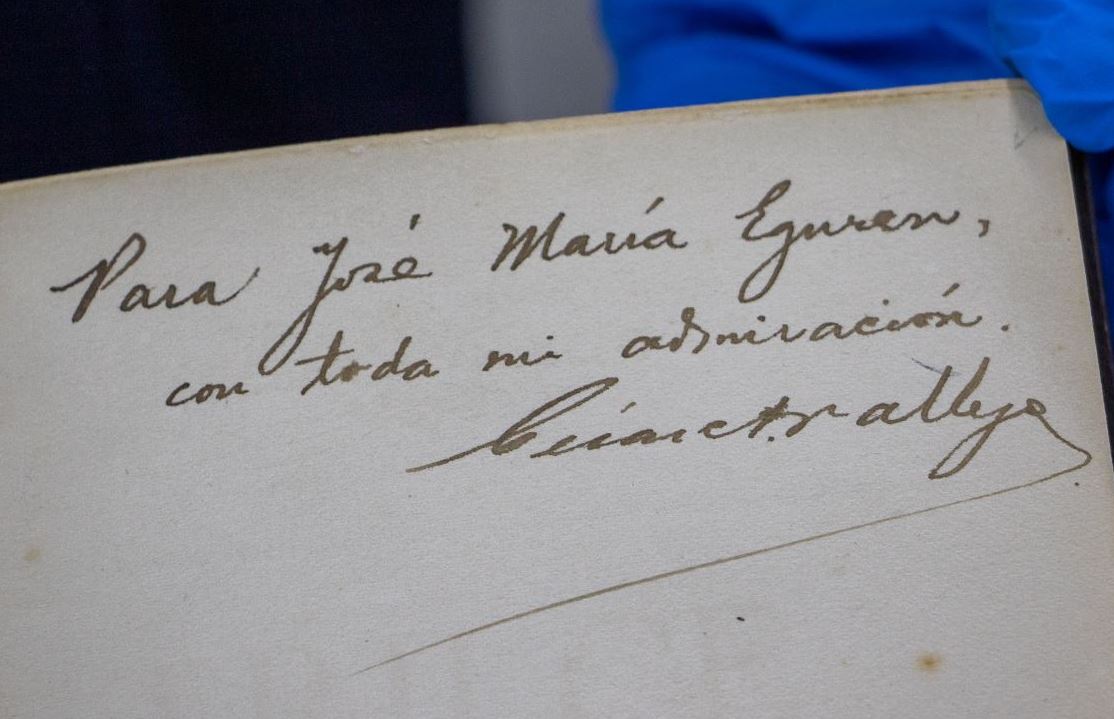 Para José María Eguren,
con toda mi admiración.
César A. Vallejo